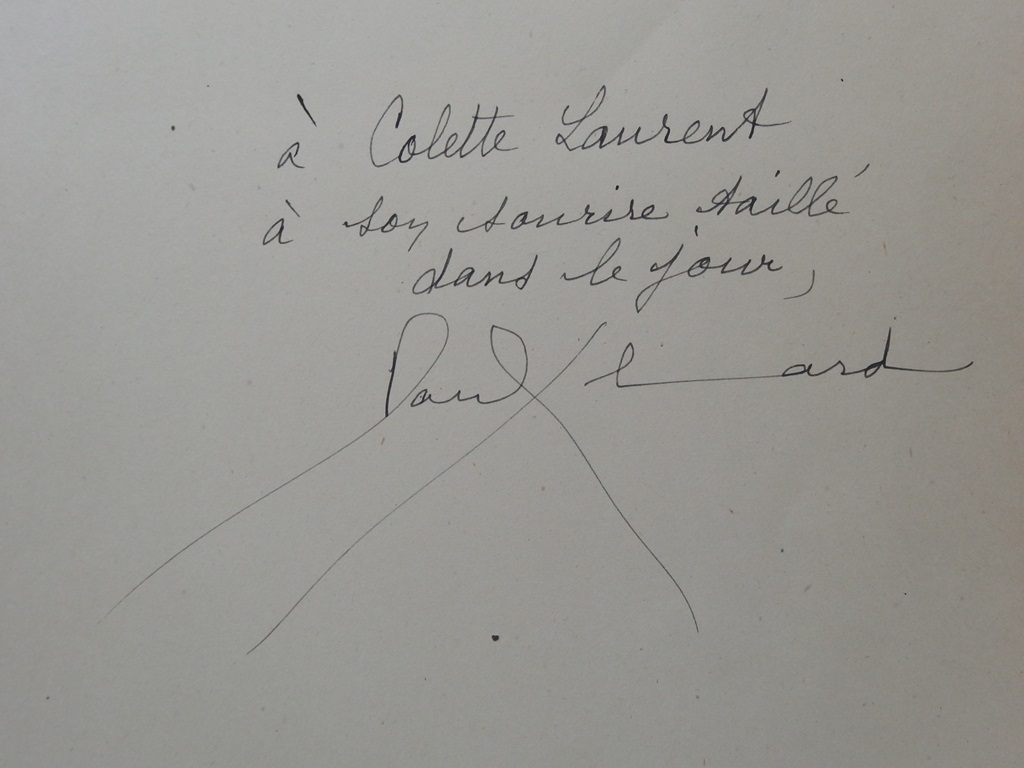 à Colette Laurent
à son sourire taillé
dans le jour,
Paul Eluard